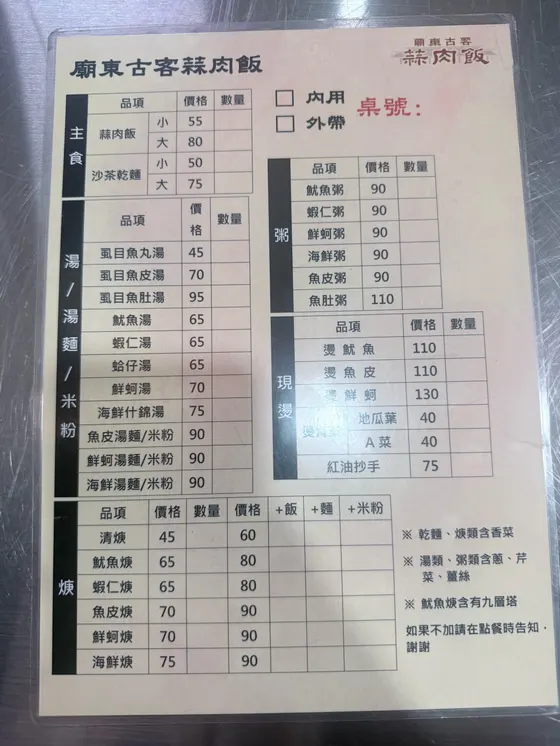 廟東古客蒜肉飯
廟東古客
蒜肉飯
內用
外帶
桌號：
主食
品項 價格 數量
蒜肉飯 小 55
大 80
沙茶乾麵 小 50
大 75
湯/湯麵/米粉
品項 價格 數量
虱目魚丸湯 45
虱目魚皮湯 70
虱目魚肚湯 95
魷魚湯 65
蝦仁湯 65
蛤仔湯 65
鮮蚵湯 70
海鮮什錦湯 75
魚皮湯麵/米粉 90
鮮蚵湯麵/米粉 90
海鮮湯麵/米粉 90
粥
品項 價格 數量
魷魚粥 90
蝦仁粥 90
鮮蚵粥 90
海鮮粥 90
魚皮粥 90
魚肚粥 110
現燙
品項 價格 數量
燙魷魚 110
燙魚皮 110
燙鮮蚵 130
地瓜葉 40
A菜 40
紅油抄手 75
焿
品項 價格 數量 價格 +飯 +麵 +米粉
清焿 45 60
魷魚焿 65 80
蝦仁焿 65 80
魚皮焿 70 90
鮮蚵焿 70 90
海鮮焿 75 90
※ 乾麵、焿類含香菜
※ 湯類、粥類含蔥、芹
菜、薑絲
※ 魷魚焿含有九層塔
如果不加請在點餐時告知，
謝謝